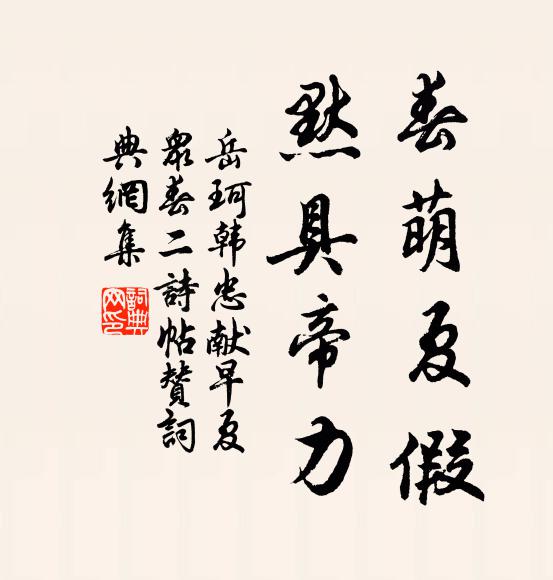 春萌夏假
默具帝力
岳珂韩忠献早夏
眾春二詩帖贊詞
典網集
詞典
网印